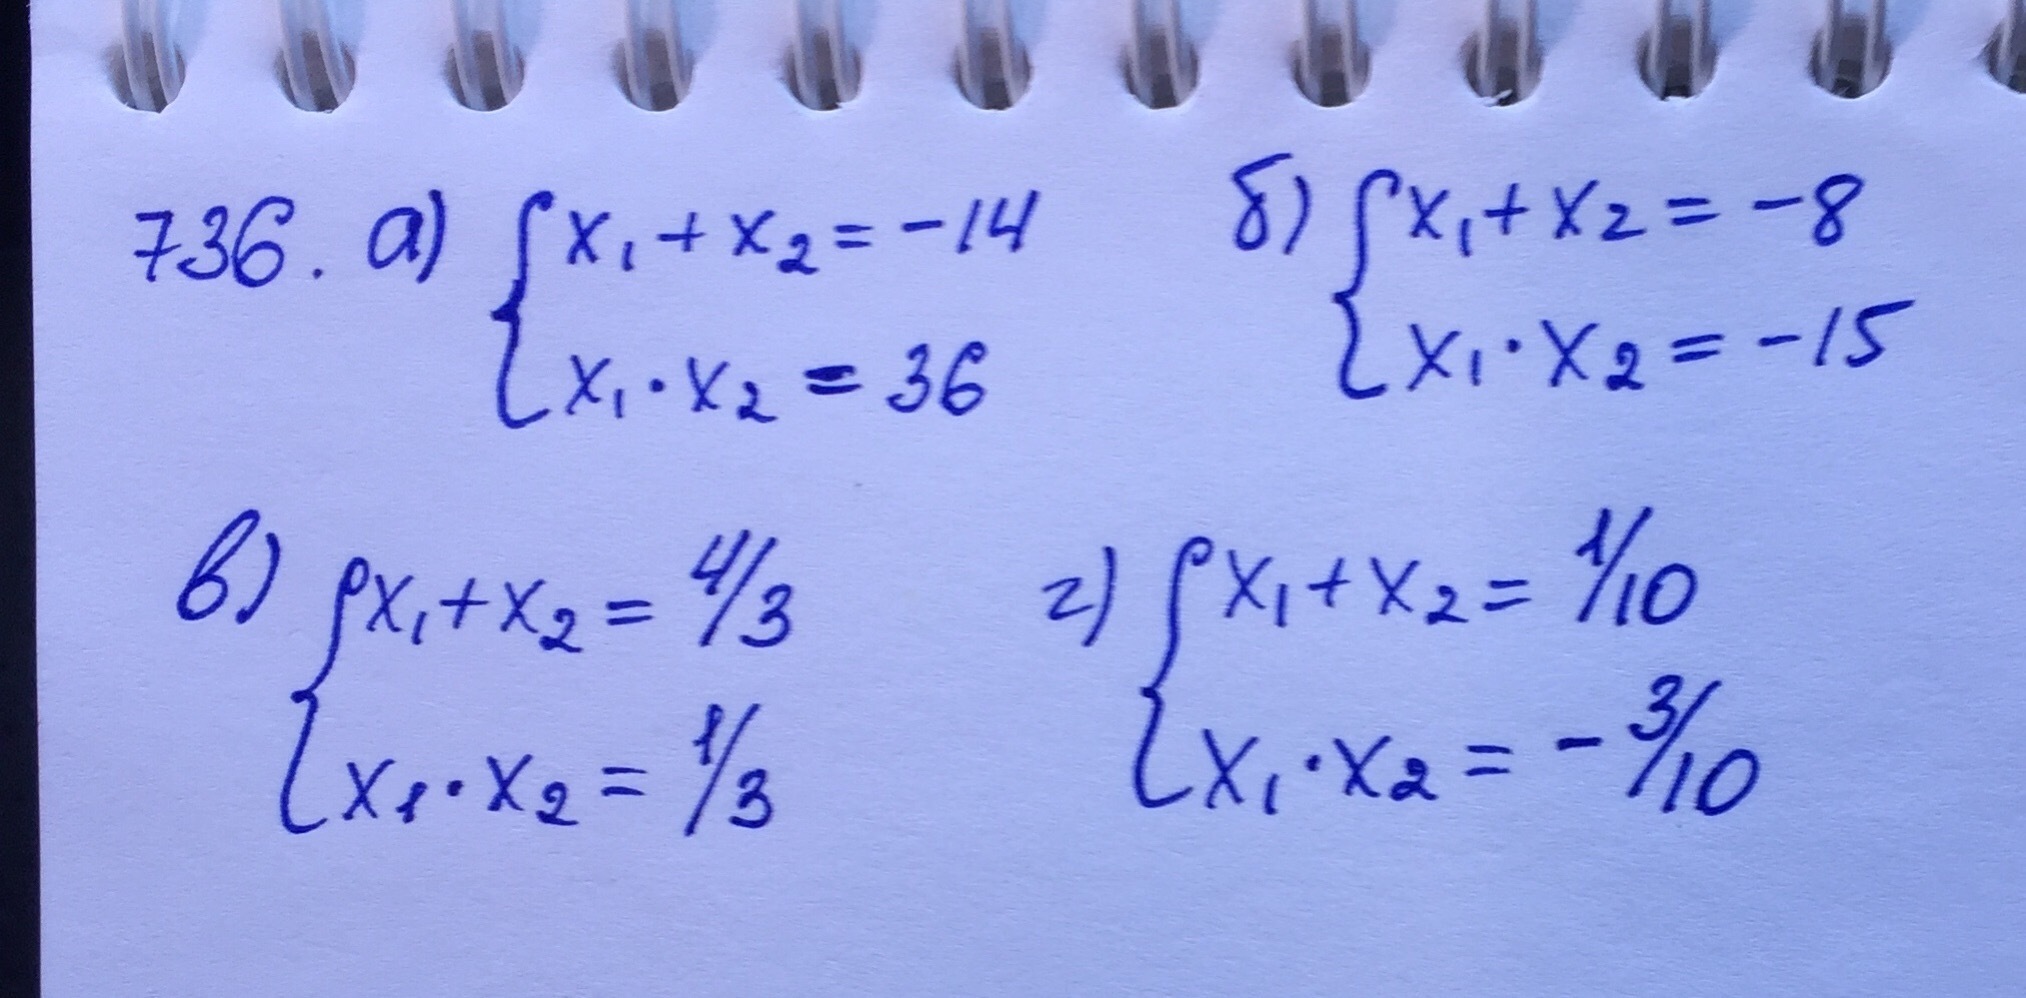 736. а) { x₁ + x₂ = -14
x₁ · x₂ = 36
б) { x₁ + x₂ = -8
x₁ · x₂ = -15
в) { x₁ + x₂ = 4/3
x₁ · x₂ = 1/3
г) { x₁ + x₂ = 1/10
x₁ · x₂ = - 3/10